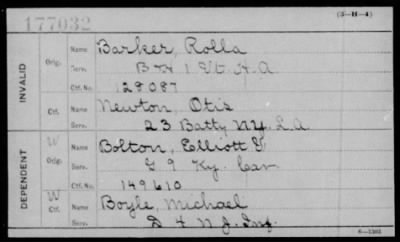 (3-H-4)
177032
INVALID
Orig.
Name Barker, Rolla
Serv. B & H 1 Vt. H. A
Ctf. No. 129087
Ctf.
Name Newton, Otis
Serv. 23 Batty N.Y. L.A
DEPENDENT
W
Orig.
Name Bolton, Elliott G
Serv. G 9 Ky. Cav
Ctf. No. 149610
W
Ctf.
Name Boyle, Michael
Serv. D 4 N. J. Inf.
6-1301